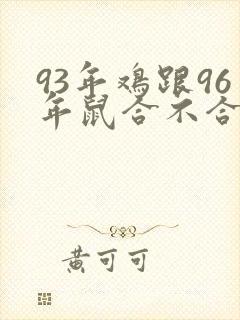 93年鸡跟96
年鼠合不合
黄可可